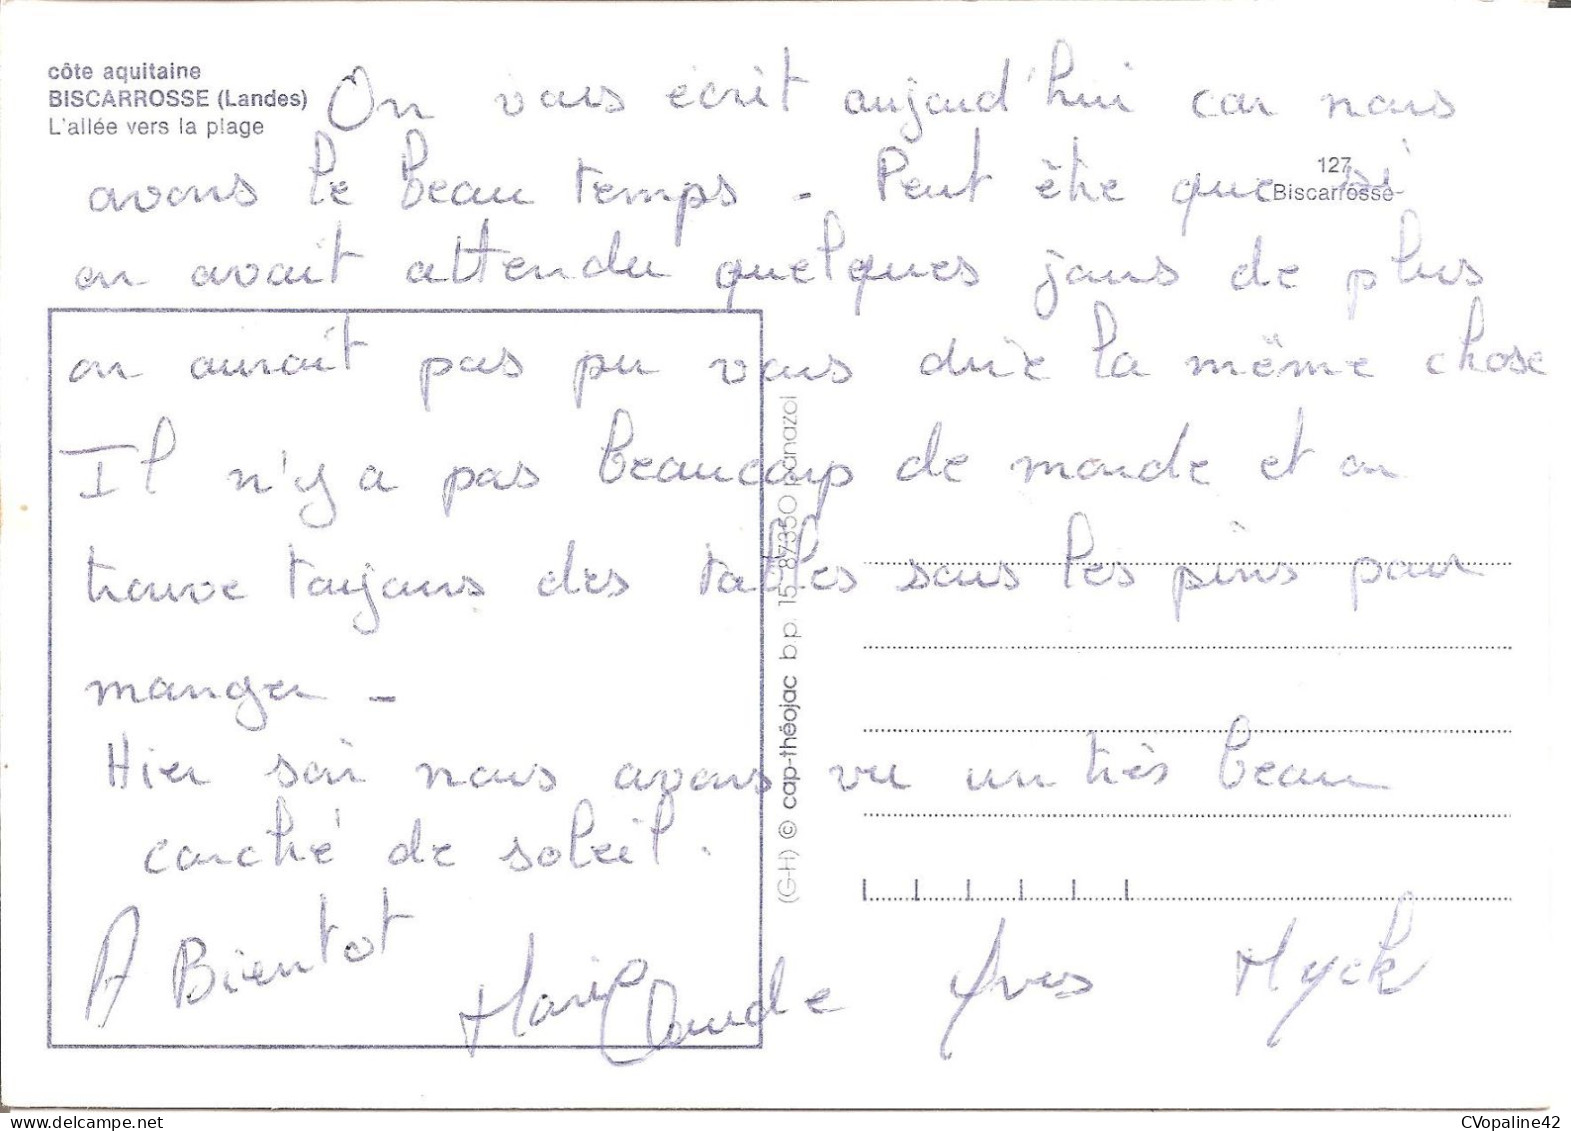 côte aquitaine
BISCARROSSE (Landes)
L'allée vers la plage
On vous écrit aujourd'hui car nous
127
Biscarrosse
avons le beau temps - Peut être que si
on avait attendu quelques jours de plus
on aurait pas pu vous dire la même chose
Il n'y a pas beaucoup de monde et on
trouve toujours des tables sous les pins pour
manger -
Hier soir nous avons vu un très beau
couché de soleil.
A Bientot Marie Claude Yves Myck
(G-H) © cap-théojac b.p. 15-87350 panazol
www.delcampe.net
CVopaline42